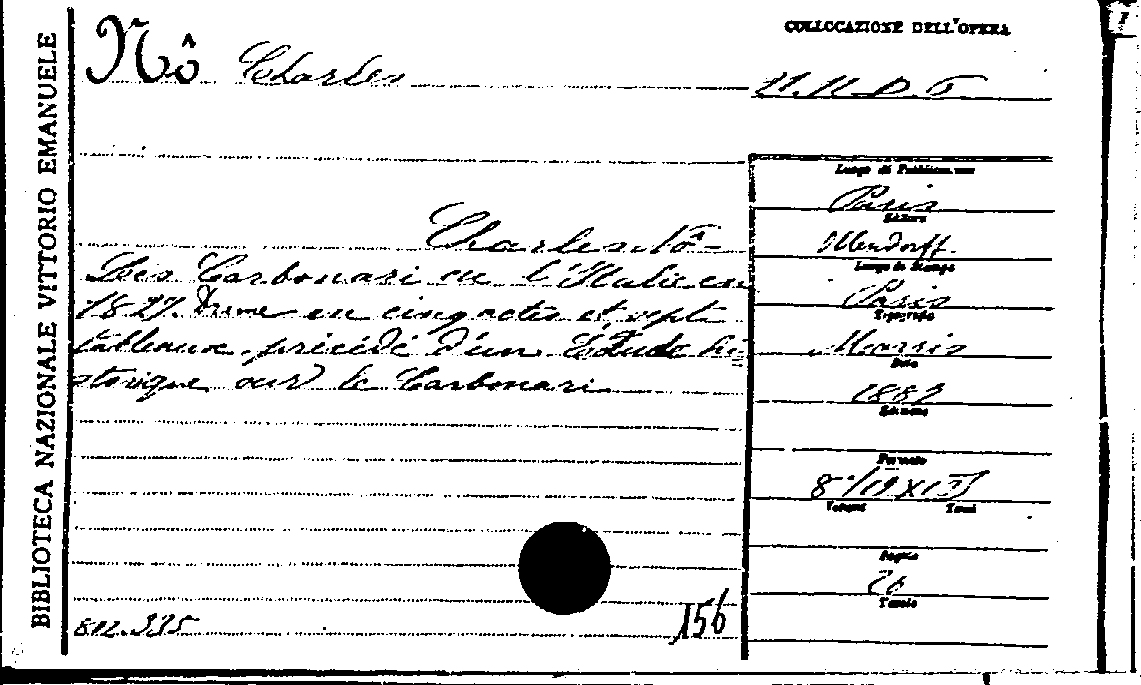 BIBLIOTECA NAZIONALE VITTORIO EMANUELE
Nô Charles
COLLOCAZIONE DELL'OPERA
11.11.D.6
Charles Nô -
Les Carbonari ou l'Italie en
1827. Drame en cinq actes et sept
tableaux, précédé d'un Étude hi
storique sur le Carbonari
812.335
156
Luogo di Pubblicazione
Paris
Editore
Ollendorff
Luogo di Stampa
Paris
Tipografia
Morris
Data
1882
Edizione
Formato
8°/19X13
Volumi Tomi
Pagine
Tavole